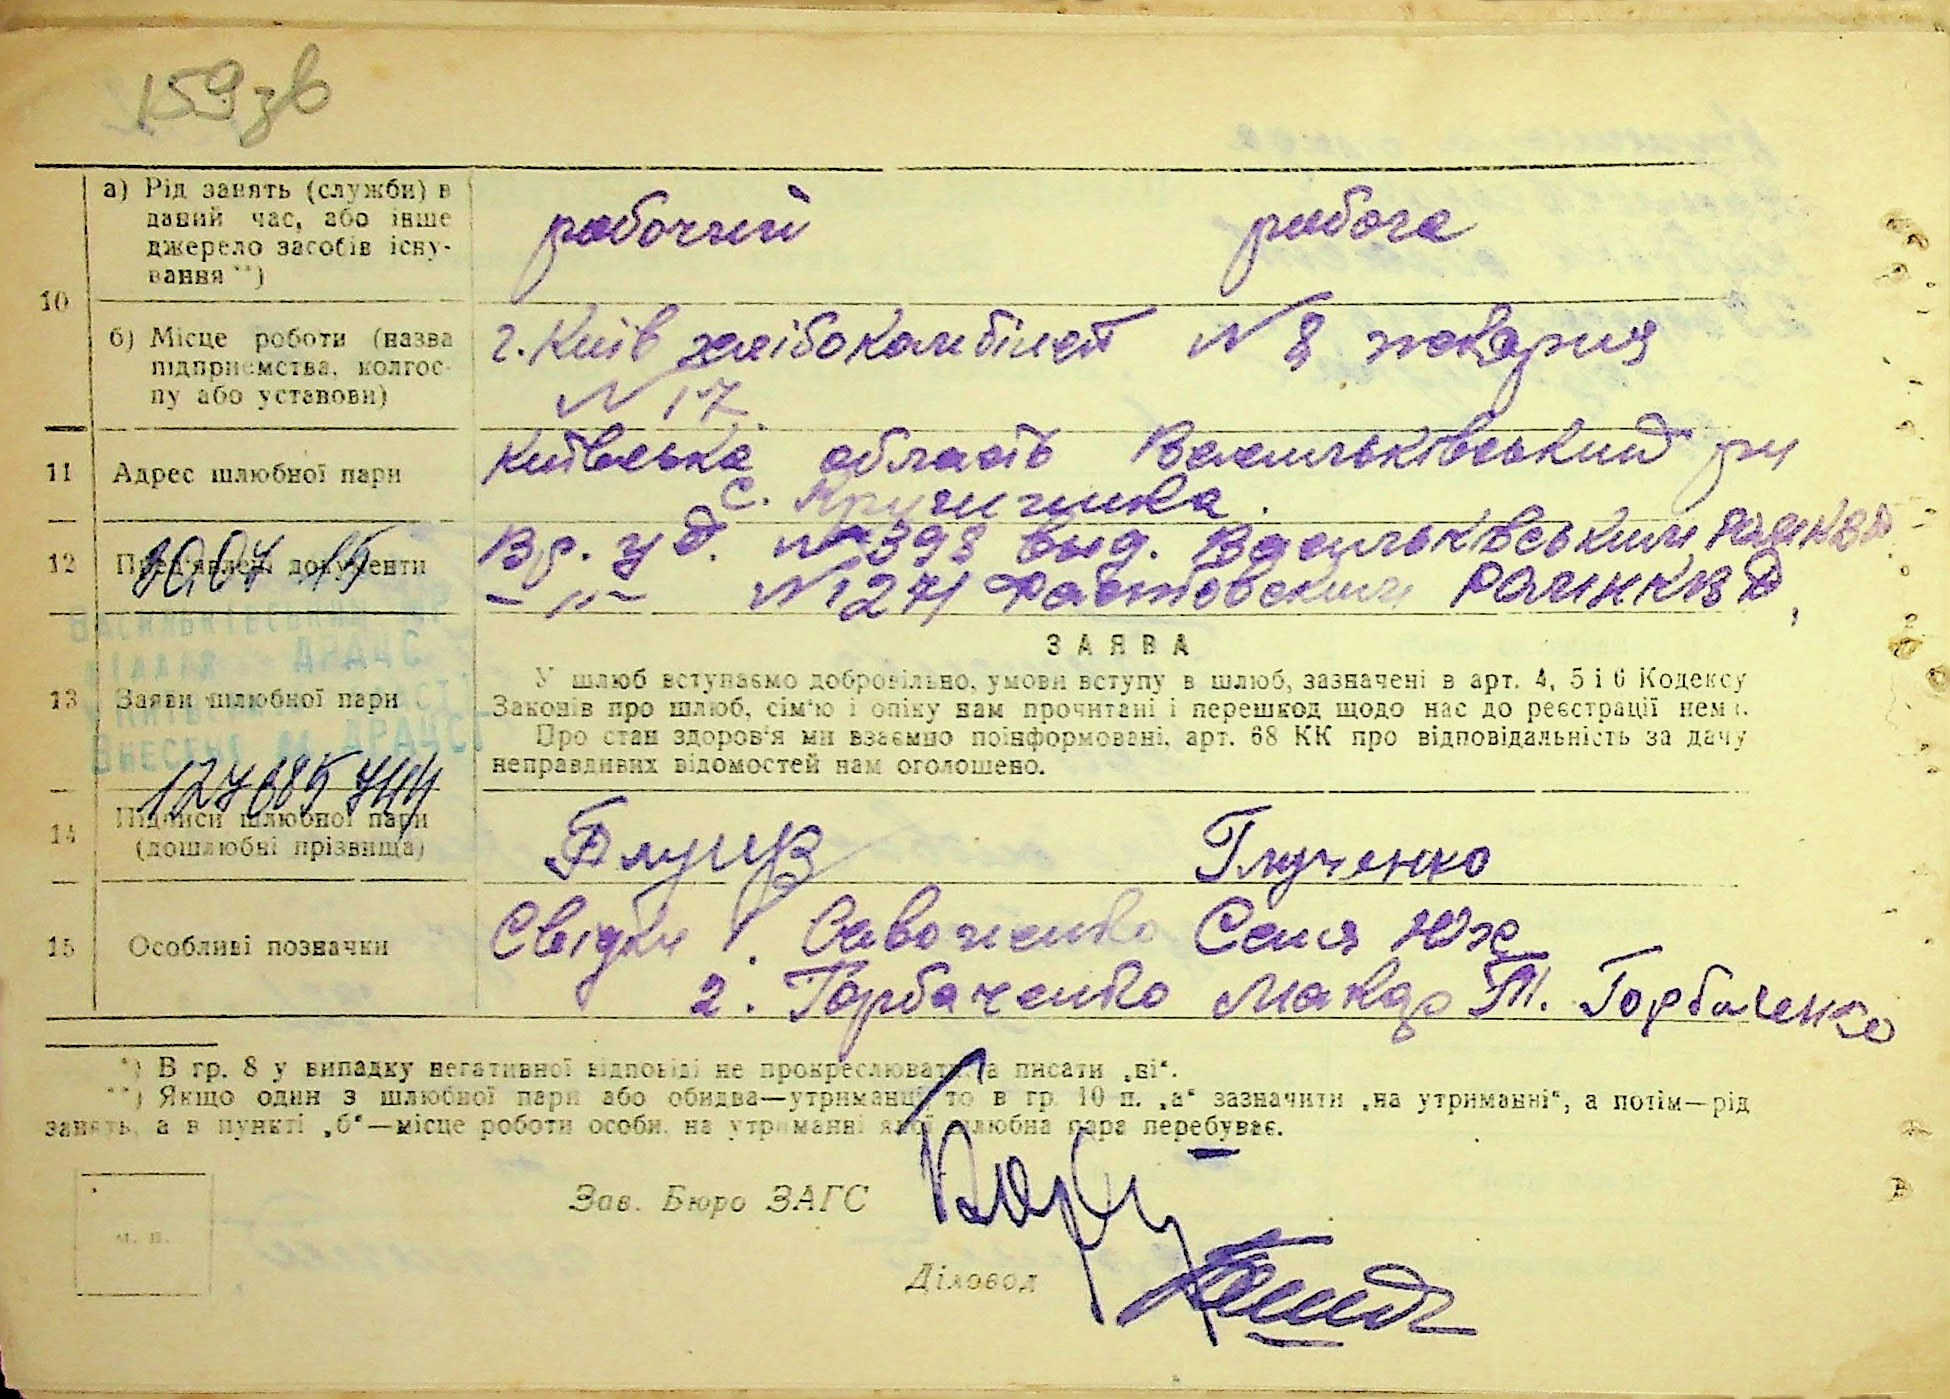 159 зв
10
а) Рід занять (служби) в
даний час, або інше
джерело засобів існу-
вання **)
рабочий робоча
б) Місце роботи (назва
підприємства, колгос-
пу або установи)
г. Київ хлібокомбінат № 8 пекарня
№ 17
11 Адрес шлюбної пари
Київська область Васильківський рн
с.
12 Пред'явлені документи
30.07 15
Вр. уд. № 398 выд. Васильківським
— „ — № 1271 Фастовским РОМ НКВД,
Васильківський
відділ ДРАЦС
Внесено до ДРАЦСГ
127685744
13 Заяви шлюбної пари
ЗАЯВА
У шлюб вступаємо добровільно, умови вступу в шлюб, зазначені в арт. 4, 5 і 6 Кодексу
Законів про шлюб, сім'ю і опіку нам прочитані і перешкод щодо нас до реєстрації нема.
Про стан здоров'я ми взаємно поінформовані, арт. 68 КК про відповідальність за дачу
неправдивих відомостей нам оголошено.
14 Підписи шлюбної пари
(дошлюбні прізвища)
Глученко
15 Особливі позначки
Свідки 1. Савоненко
2. Горбаченко Макар Т. Горбаченко
*) В гр. 8 у випадку негативної відповіді не прокреслювати, а писати „ні“.
**) Якщо один з шлюбної пари або обидва—утриманці то в гр. 10 п. „а“ зазначити „на утриманні“, а потім—рід
занять, а в пункті „б“—місце роботи особи, на утриманні якої шлюбна пара перебуває.
Зав. Бюро ЗАГС
м. п.
Діловод